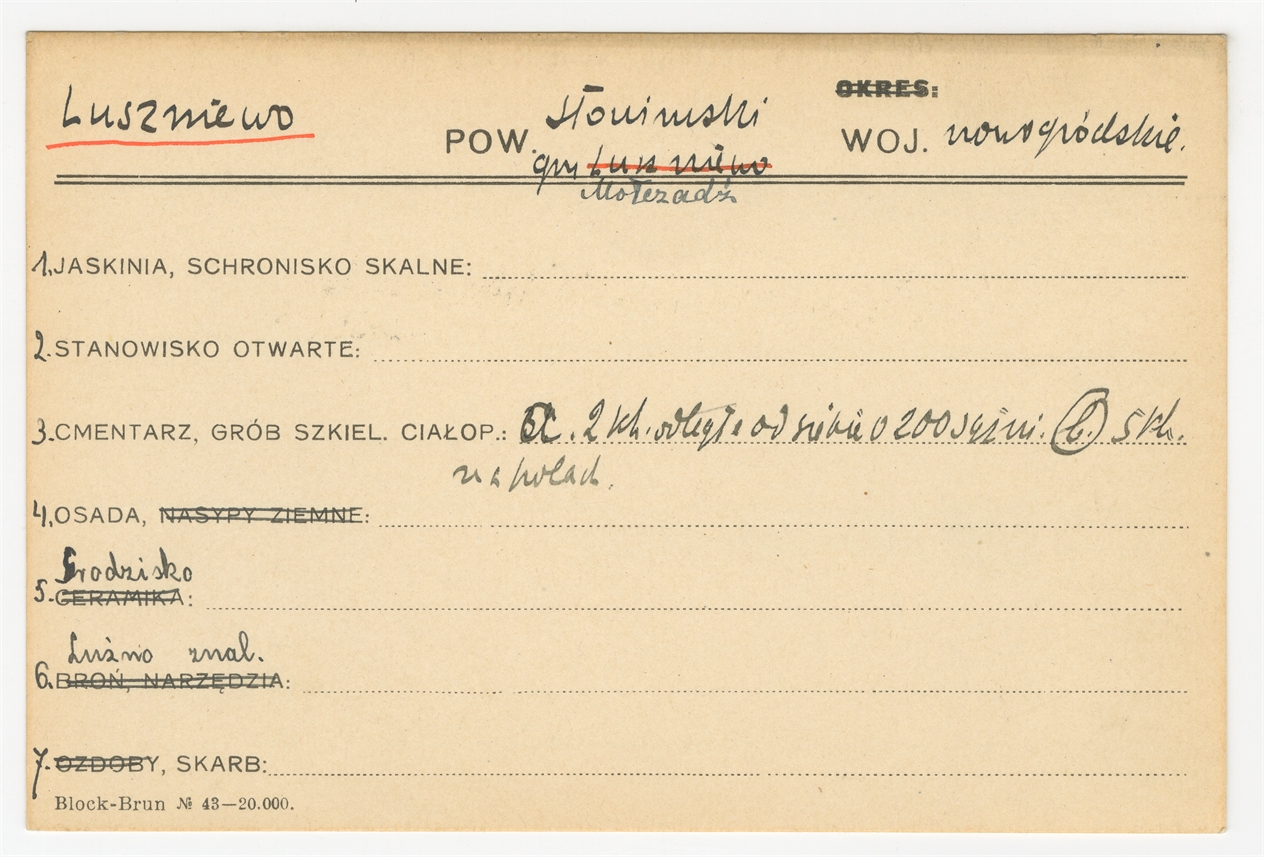 OKRES:
Luszniewo POW. Słonimski WOJ. nowogródskie.
gm Luszniewo
Mołczadź
1. JASKINIA, SCHRONISKO SKALNE:
2. STANOWISKO OTWARTE:
3. CMENTARZ, GRÓB SZKIEL. CIAŁOP.: a. 2 kh. odległe od siebie o 200 sążni. (b.) 5 kh.
na polach.
4. OSADA, NASYPY ZIEMNE:
Grodzisko
5. CERAMIKA:
Luźno znal.
6. BROŃ, NARZĘDZIA:
7. OZDOBY, SKARB:
Block-Brun № 43—20.000.